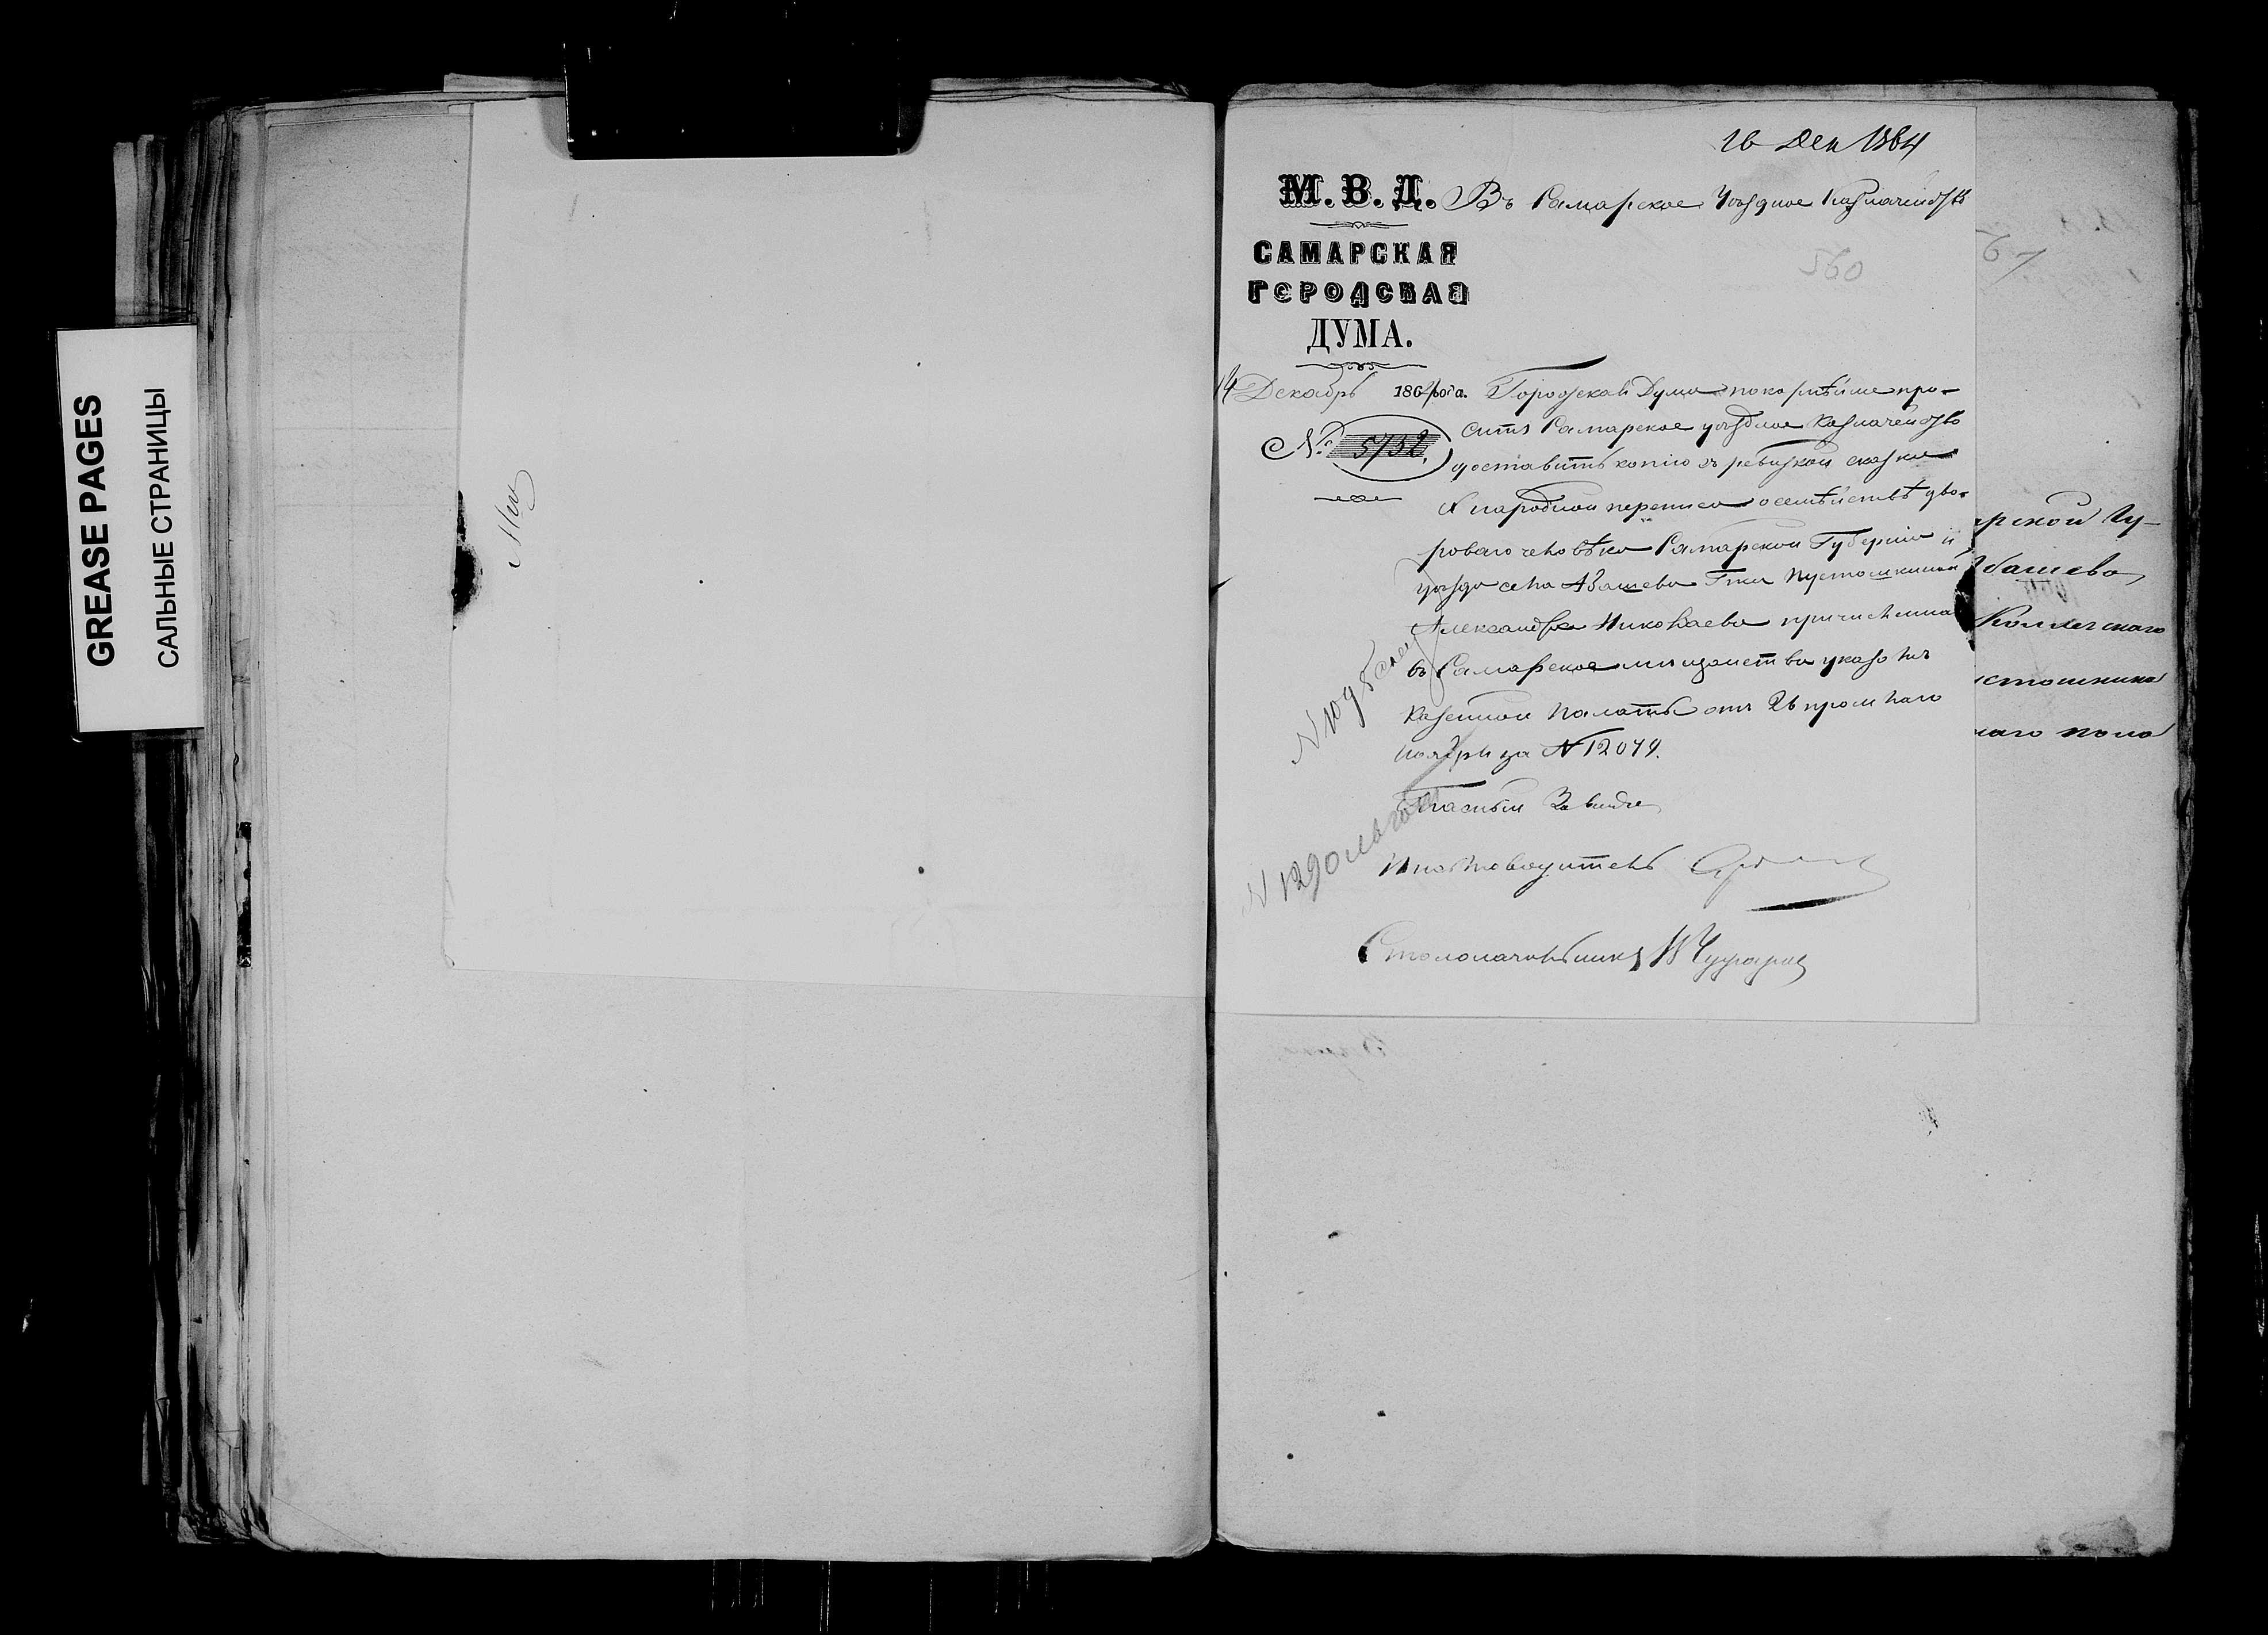 GREASE PAGES
САЛЬНЫЕ СТРАНИЦЫ
16 Дек 1864
М. В. Д.
Въ Самарское Уѣздное Казначейство
САМАРСКАЯ
ГОРОДСКАЯ
ДУМА.
560
67
14 Декабрь 1864 года.
№ 5732.
Городская Дума покорнѣйше про-
ситъ Самарское уѣздное Казначейство
доставить копію съ ревизкой сказки
народной переписи о семѣйствѣ дво-
роваго человѣка Самарской Губерніи и
уѣзда села Абашева Гжи Пустошкиной
Александра Николаева причисленна
въ Самарское мѣщанство указомъ
Казенной Палаты отъ 26 прошлаго
Ноября за № 12079.
Гласный
Столоначальникъ
рской Гу-
Абашева,
Коллегскаго
устошкина
наго пола